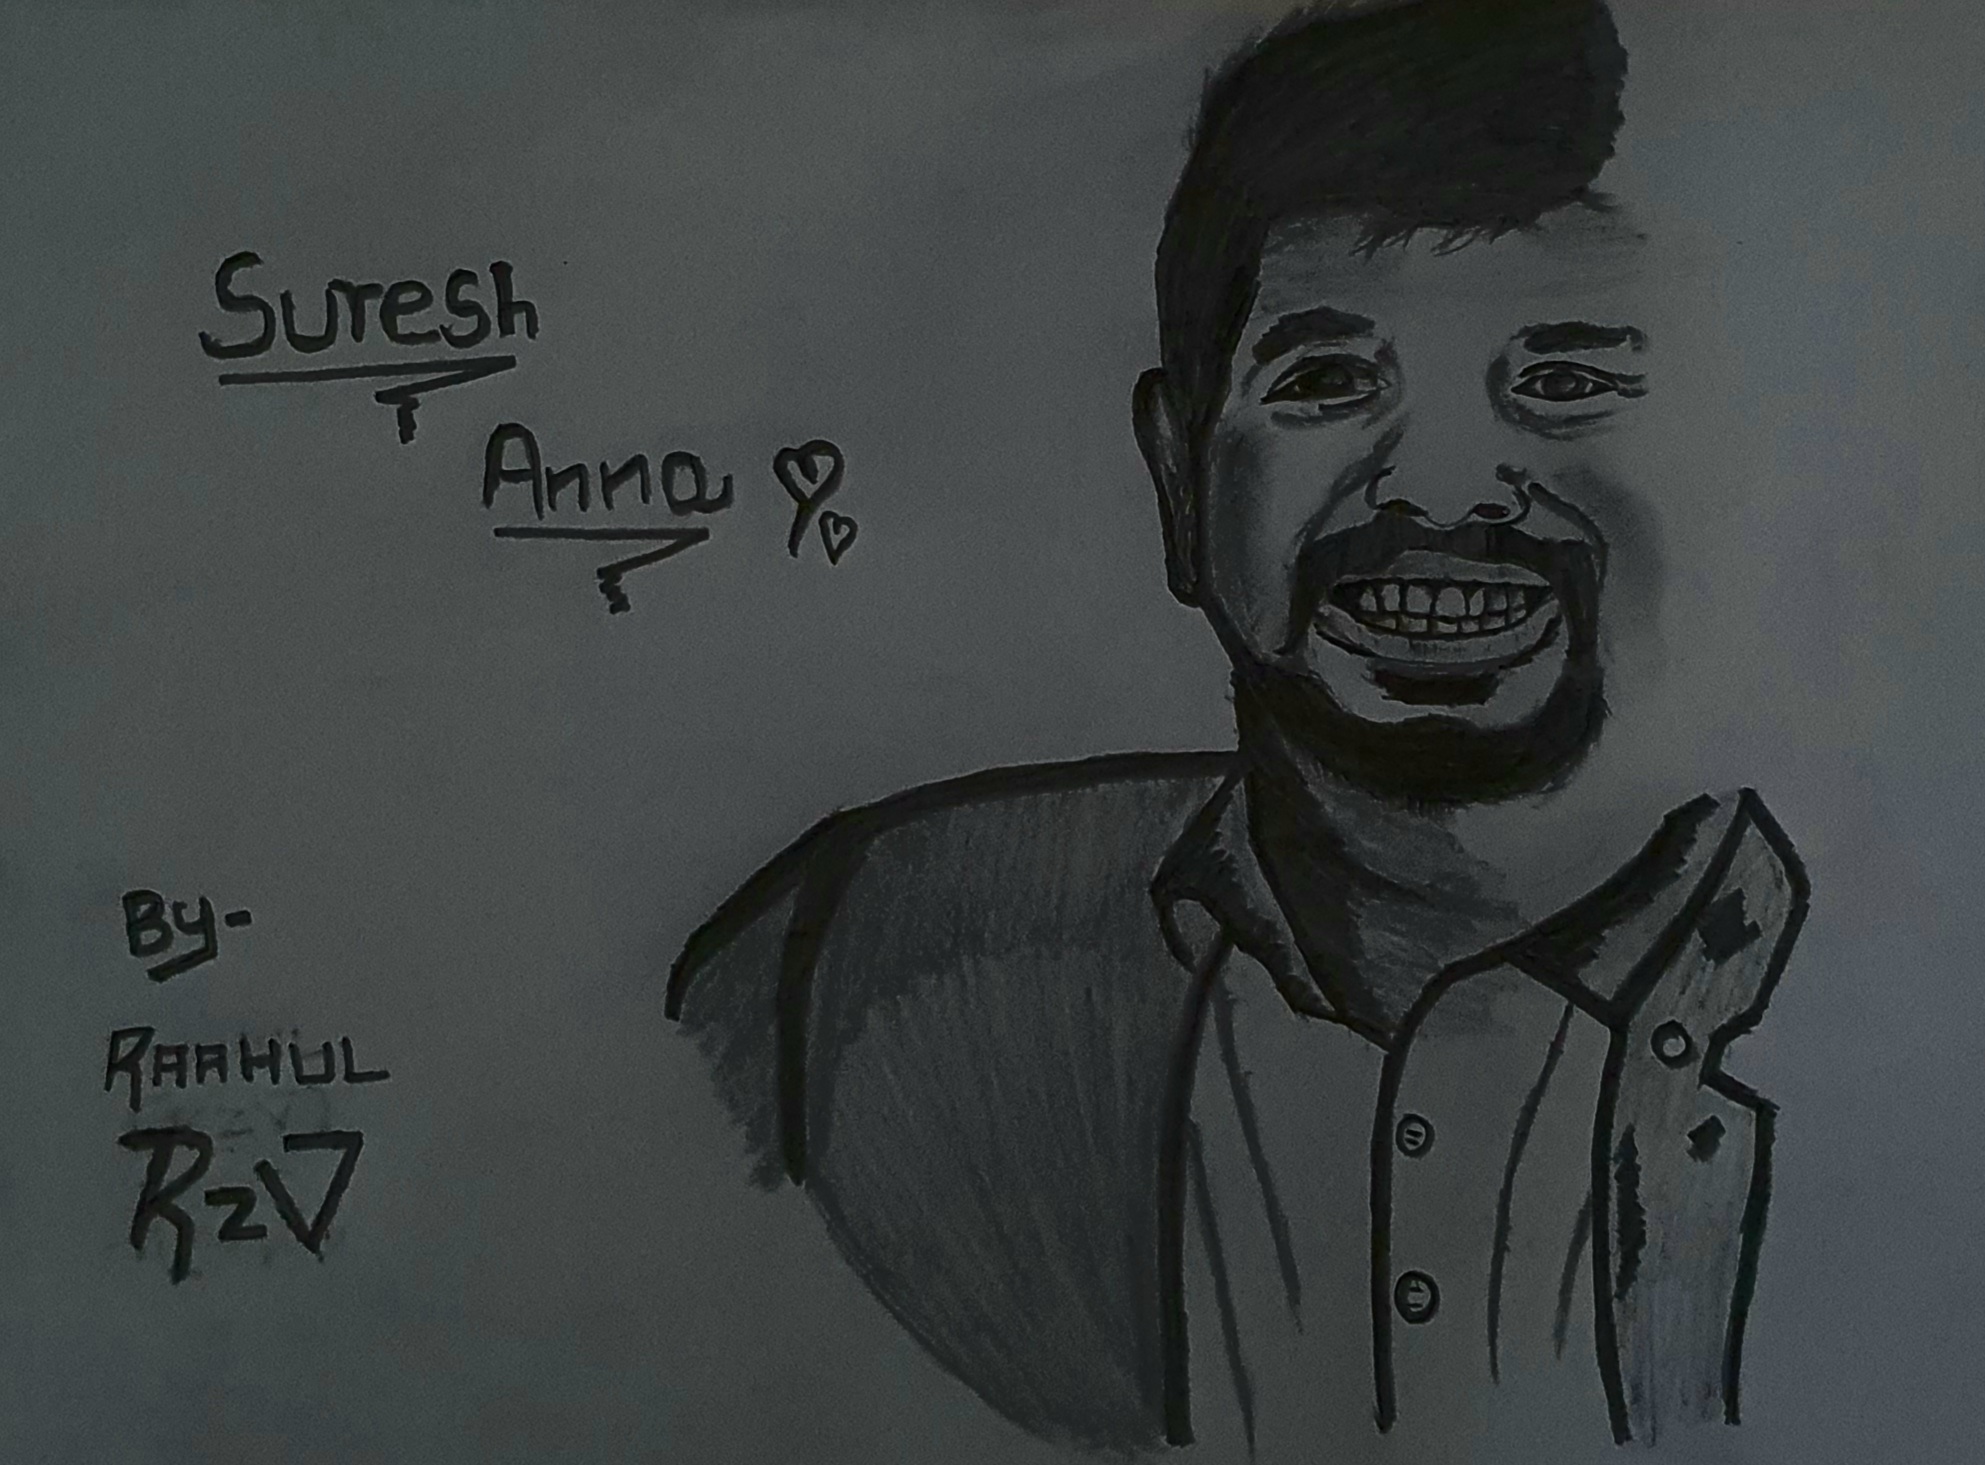 Suresh
Anna
By-
RAAHUL
RzV